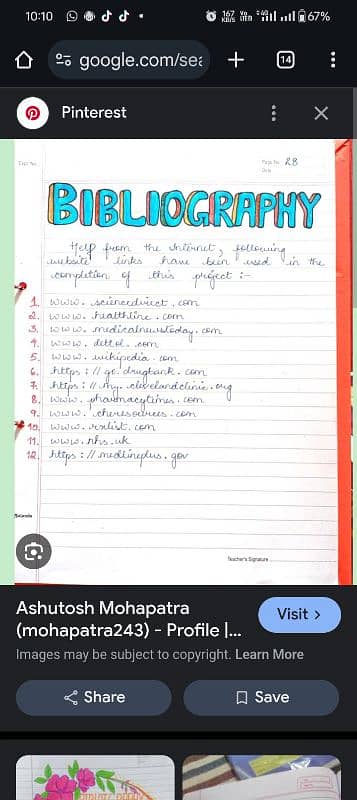 10:10 167 KB/S Vo LTE 4G 67%
google.com/sea 14
Pinterest
Page No. 28
Date
BIBLIOGRAPHY
Help from the internet, following
website links have been used in the
completion of this project :-
1. www. sciencedirect . com
2. www. healthline . com
3. www. medicalnewstoday . com
4. www. dettol . com
5. www. wikipedia . com
6. https : // go. drugbank . com
7. https : // my. clevelandclinic . org
8. www. pharmacytimes . com
9. www. cheresources . com
10. www. rxlist. com
11. www. nhs . uk
12. https : // medlineplus . gov
Teacher's Signature
Ashutosh Mohapatra
(mohapatra243) - Profile |...
Visit >
Images may be subject to copyright. Learn More
Share
Save